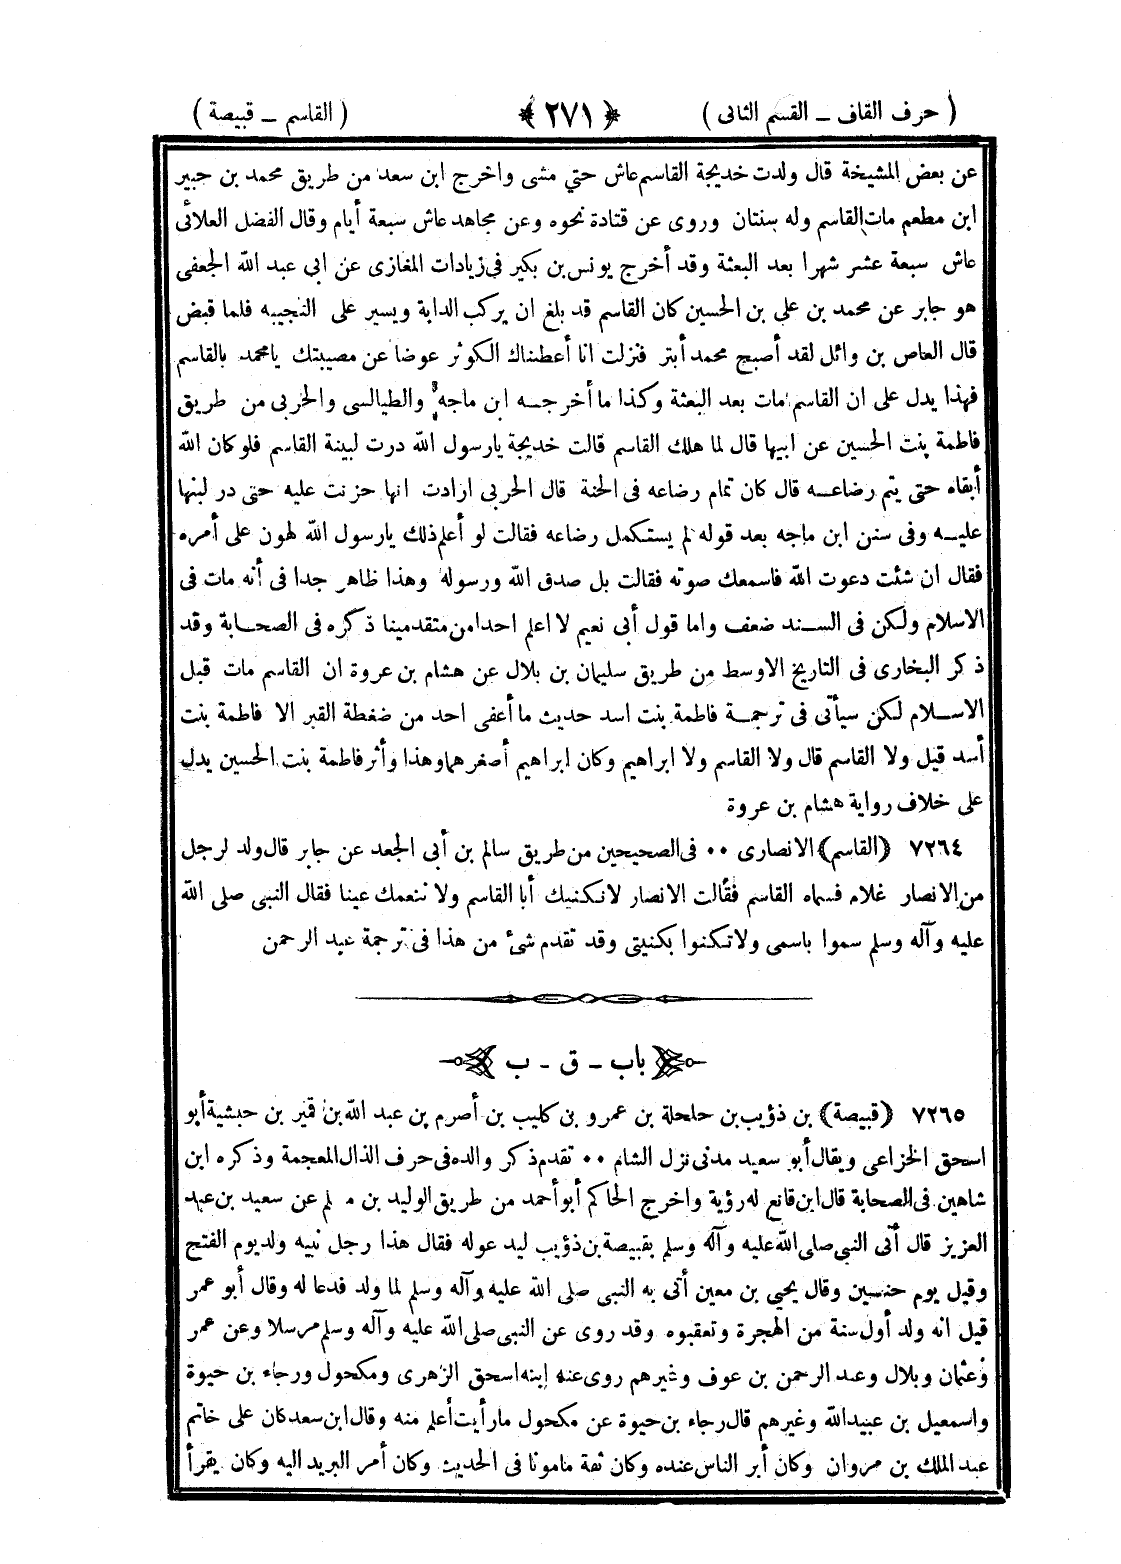 ( حرف القاف ــ القسم الثانى ) ﴿ ٢٧١ ﴾ ( القاسم ــ قبيصة )
عن بعض المشيخة قال ولدت خديجة القاسم عاش حتي مشى واخرج ابن سعد من طريق محمد بن جبير
ابن مطعم مات القاسم وله سنتان وروى عن قتادة نحوه وعن مجاهد عاش سبعة أيام وقال الفضل العلائى
عاش سبعة عشر شهرا بعد البعثة وقد أخرج يونس بن بكير فى زيادات المغازى عن ابي عبد الله الجعفى
هو جابر عن محمد بن علي بن الحسين كان القاسم قد بلغ ان يركب الدابة ويسير على النجيبه فلما قبض
قال العاص بن وائل لقد أصبح محمد أبتر فنزلت انا أعطيناك الكوثر عوضا عن مصيبتك يامحمد بالقاسم
فهذا يدل على ان القاسم مات بعد البعثة وكذا ما أخرجه ابن ماجه والطيالسى والحربى من طريق
فاطمة بنت الحسين عن ابيها قال لما هلك القاسم قالت خديجة يارسول الله درت لبينة القاسم فلو كان الله
أبقاه حتى يتم رضاعه قال كان تمام رضاعه فى الجنة قال الحربي ارادت انها حزنت عليه حتى در لبنها
عليه وفى سنن ابن ماجه بعد قوله لم يستكمل رضاعه فقالت لو أعلم ذلك يارسول الله لهون على أمره
فقال ان شئت دعوت الله فاسمعك صوته فقالت بل صدق الله ورسوله وهذا ظاهر جدا فى أنه مات فى
الاسلام ولكن فى السند ضعف واما قول أبى نعيم لا اعلم احدا من متقدمينا ذكره فى الصحابة وقد
ذكر البخارى فى التاريخ الاوسط من طريق سليمان بن بلال عن هشام بن عروة ان القاسم مات قبل
الاسلام لكن سيأتى فى ترجمة فاطمة بنت اسد حديث ما أعفى احد من ضغطة القبر الا فاطمة بنت
أسد قيل ولا القاسم قال ولا القاسم ولا ابراهيم وكان ابراهيم أصغرهما وهذا وأثر فاطمة بنت الحسين يدل
على خلاف رواية هشام بن عروة
٧٢٦٤ ﴿القاسم﴾ الانصارى ٠٠ فى الصحيحين من طريق سالم بن أبى الجعد عن جابر قال ولد لرجل
من الانصار غلام فسماه القاسم فقالت الانصار لانكنيك أبا القاسم ولا ننعمك عينا فقال النبى صلى الله
عليه وآله وسلم سموا باسمى ولاتكنوا بكنيتى وقد تقدم شئ من هذا فى ترجمة عبد الرحمن
باب ــ ق ــ ب
٧٢٦٥ ﴿قبيصة﴾ بن ذؤيب بن حلحلة بن عمرو بن كليب بن أصرم بن عبد الله بن قمير بن حبشية أبو
اسحق الخزاعى ويقال أبو سعيد مدنى نزل الشام ٠٠ تقدم ذكر والده فى حرف الذال المعجمة وذكره ابن
شاهين فى الصحابة قال ابن قانع له رؤية واخرج الحاكم أبو أحمد من طريق الوليد بن مسلم عن سعيد بن عبد
العزيز قال أتى النبى صلى الله عليه وآله وسلم بقبيصة بن ذؤيب ليدعو له فقال هذا رجل نبيه ولد يوم الفتح
وقيل يوم حنين وقال يحيى بن معين أتى به النبى صلى الله عليه وآله وسلم لما ولد فدعا له وقال أبو عمر
قيل انه ولد أول سنة من الهجرة وتعقبوه وقد روى عن النبى صلى الله عليه وآله وسلم مرسلا وعن عمر
وعثمان وبلال وعبد الرحمن بن عوف وغيرهم روى عنه ابنه اسحق الزهرى ومكحول ورجاء بن حيوة
واسمعيل بن عبيد الله وغيرهم قال رجاء بن حيوة عن مكحول مارأيت أعلم منه وقال ابن سعد كان على خاتم
عبد الملك بن مروان وكان أبر الناس عنده وكان ثقة مامونا فى الحديث وكان أمر البريد اليه وكان يقرأ